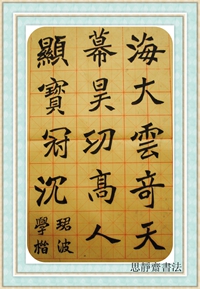 海大雲奇天
幕昊功高人
顯寶冠沉
珺波
學楷
思靜齋書法